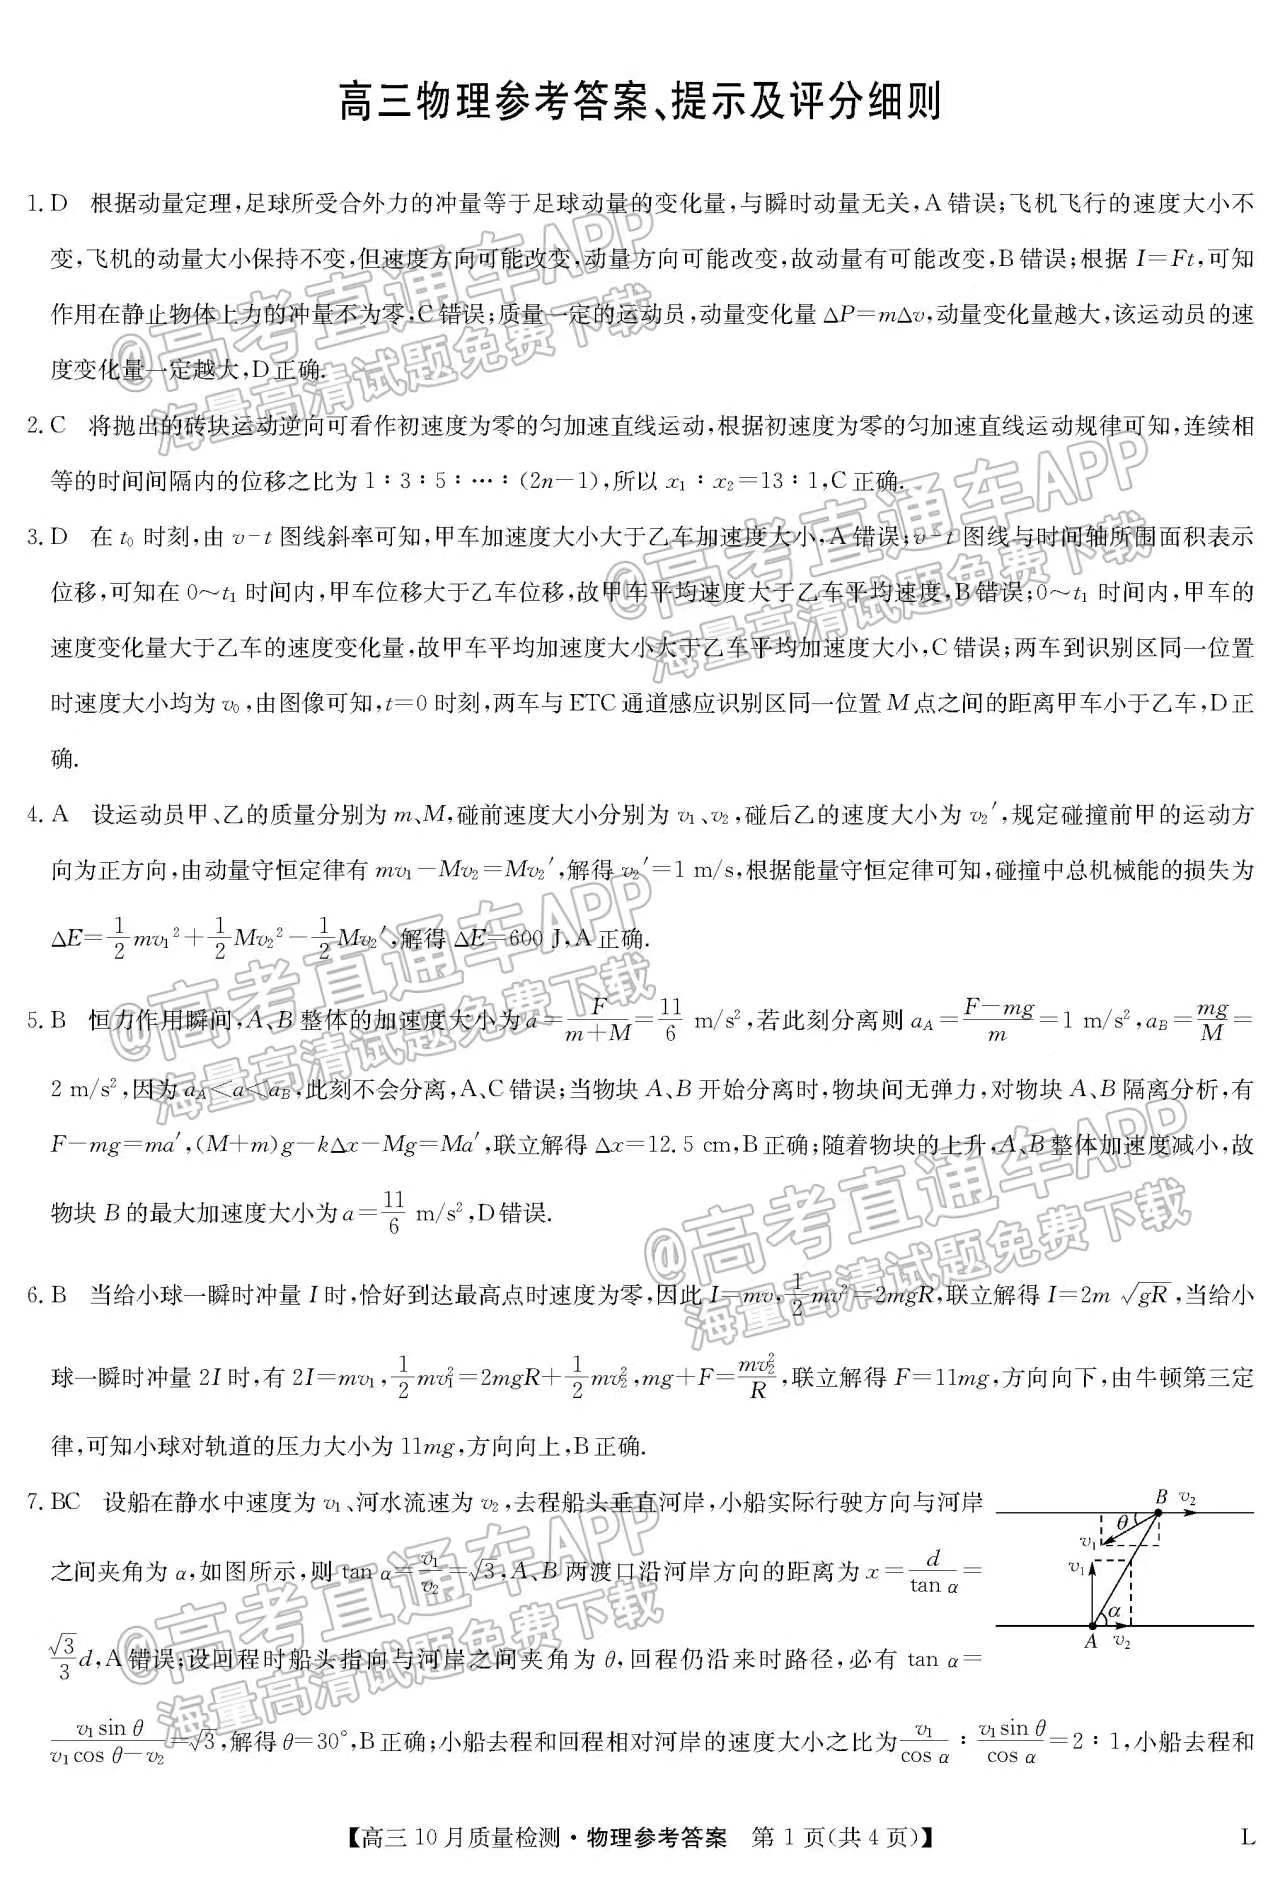 高三物理参考答案、提示及评分细则
1. D 根据动量定理,足球所受合外力的冲量等于足球动量的变化量,与瞬时动量无关,A错误;飞机飞行的速度大小不
变,飞机的动量大小保持不变,但速度方向可能改变,动量方向可能改变,故动量有可能改变,B错误;根据 I=Ft,可知
作用在静止物体上力的冲量不为零,C错误;质量一定的运动员,动量变化量 ΔP=mΔv,动量变化量越大,该运动员的速
度变化量一定越大,D正确.
2. C 将抛出的砖块运动逆向可看作初速度为零的匀加速直线运动,根据初速度为零的匀加速直线运动规律可知,连续相
等的时间间隔内的位移之比为 1∶3∶5∶…∶(2n−1),所以 x₁∶x₂=13∶1,C正确.
3. D 在 t₀ 时刻,由 v-t 图线斜率可知,甲车加速度大小大于乙车加速度大小,A错误;v-t 图线与时间轴所围面积表示
位移,可知在 0~t₁ 时间内,甲车位移大于乙车位移,故甲车平均速度大于乙车平均速度,B错误;0~t₁ 时间内,甲车的
速度变化量大于乙车的速度变化量,故甲车平均加速度大小大于乙车平均加速度大小,C错误;两车到识别区同一位置
时速度大小均为 v₀,由图像可知,t=0 时刻,两车与 ETC 通道感应识别区同一位置 M 点之间的距离甲车小于乙车,D正
确.
4. A 设运动员甲、乙的质量分别为 m、M,碰前速度大小分别为 v₁、v₂,碰后乙的速度大小为 v₂′,规定碰撞前甲的运动方
向为正方向,由动量守恒定律有 mv₁−Mv₂=Mv₂′,解得 v₂′=1 m/s,根据能量守恒定律可知,碰撞中总机械能的损失为
ΔE=1/2 mv₁²+1/2 Mv₂²−1/2 Mv₂′,解得 ΔE=600 J,A正确.
5. B 恒力作用瞬间,A、B整体的加速度大小为 a=F/(m+M)=11/6 m/s²,若此刻分离则 a_A=(F−mg)/m=1 m/s²,a_B=mg/M=
2 m/s²,因为 a_A<a<a_B,此刻不会分离,A、C错误;当物块 A、B开始分离时,物块间无弹力,对物块 A、B隔离分析,有
F−mg=ma′,(M+m)g−kΔx−Mg=Ma′,联立解得 Δx=12.5 cm,B正确;随着物块的上升,A、B整体加速度减小,故
物块 B的最大加速度大小为 a=11/6 m/s²,D错误.
6. B 当给小球一瞬时冲量 I 时,恰好到达最高点时速度为零,因此 I=mv,1/2 mv²=2mgR,联立解得 I=2m√gR,当给小
球一瞬时冲量 2I 时,有 2I=mv₁,1/2 mv₁²=2mgR+1/2 mv₂²,mg+F=mv₂²/R,联立解得 F=11mg,方向向下,由牛顿第三定
律,可知小球对轨道的压力大小为 11mg,方向向上,B正确.
7. BC 设船在静水中速度为 v₁、河水流速为 v₂,去程船头垂直河岸,小船实际行驶方向与河岸
之间夹角为 α,如图所示,则 tan α=v₁/v₂=√3,A、B两渡口沿河岸方向的距离为 x=d/tan α=
√3/3 d,A错误;设回程时船头指向与河岸之间夹角为 θ,回程仍沿来时路径,必有 tan α=
v₁sin θ/(v₁cos θ−v₂)=√3,解得 θ=30°,B正确;小船去程和回程相对河岸的速度大小之比为 v₁/cos α∶v₁sin θ/cos α=2∶1,小船去程和
B v₂
θ
v₁
v₁
α
A v₂
【高三10月质量检测·物理参考答案 第1页(共4页)】 L
@高考直通车APP
海量高清试题免费下载
@高考直通车APP
海量高清试题免费下载
@高考直通车APP
海量高清试题免费下载
@高考直通车APP
海量高清试题免费下载
@高考直通车APP
海量高清试题免费下载